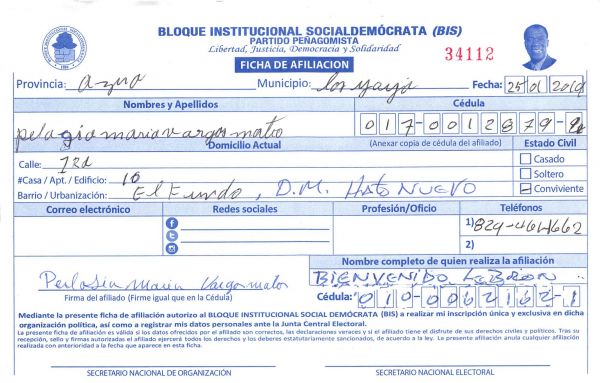 BLOQUE INSTITUCIONAL SOCIALDEMÓCRATA (BIS)
PARTIDO PEÑAGOMISTA
Libertad, Justicia, Democracia y Solidaridad
FICHA DE AFILIACION
34112
Provincia: Azua Municipio: los yayas Fecha: 25 01 2019
Nombres y Apellidos Cédula
pelagio maria vargas mateo 017-0012879-
Domicilio Actual (Anexar copia de cédula del afiliado) Estado Civil
Calle: 1ra Casado
#Casa / Apt. / Edificio: 10 Soltero
Barrio / Urbanización: El Fundo, D.M. Hato NUEVO Conviviente
Correo electrónico Redes sociales Profesión/Oficio Teléfonos
1) 829-464-1662
2)
Nombre completo de quien realiza la afiliación
Maria Vargas mateo BIENVENIDO LEBRON
Firma del afiliado (Firme igual que en la Cédula) Cédula: 010-0062162-1
Mediante la presente ficha de afiliación autorizo al BLOQUE INSTITUCIONAL SOCIAL DEMÓCRATA (BIS) a realizar mi inscripción única y exclusiva en dicha
organización política, así como a registrar mis datos personales ante la Junta Central Electoral.
La presente ficha de afiliación es válida si los datos ofrecidos por el afiliado son correctos, las declaraciones veraces y si el afiliado tiene el disfrute de sus derechos civiles y políticos. Tras su
recepción, sello y firmas autorizadas el afiliado ejercerá todos los derechos y los deberes estatutariamente sancionados, de acuerdo a la ley. La presente afiliación anula cualquier afiliación
realizada con anterioridad a la fecha que aparece en esta ficha.
SECRETARIO NACIONAL DE ORGANIZACIÓN SECRETARIO NACIONAL ELECTORAL